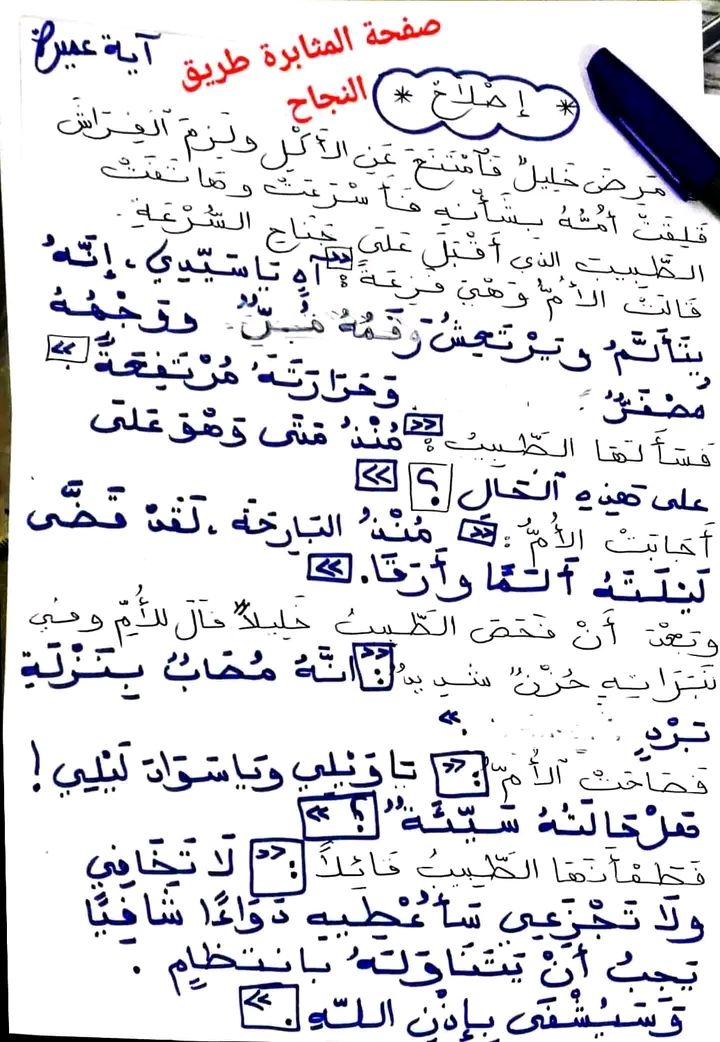 آية عميرة
صفحة المثابرة طريق
النجاح
* إِصْلَاحٌ *
مَرِضَ خَلِيلٌ فَٱمْتَنَعَ عَنِ الأَكْلِ ولَزِمَ ٱلْفِرَاشَ
قَلِقَتْ أُمُّهُ بِشَأْنِهِ فَأَسْرَعَتْ وهَاتَفَتْ
الطَّبِيبَ الذي أَقْبَلَ عَلَى جَنَاحِ السُّرْعَةِ.
قَالَتْ الأُمُّ وَهْيَ فَزِعَةً: «آهِ يَا سَيِّدِي، إِنَّهُ
يَتَأَلَّمُ ويَرْتَعِشُ وَفَمُهُ مُرٌّ ووَجْهُهُ
مُصْفَرٌّ وَحَرَارَتَهُ مُرْتَفِعَةٌ»
فَسَأَلَهَا الطَّبِيبُ: «مُنْذُ مَتَى وَهْوَ عَلَى
على هَذِهِ ٱلْحَالِ؟»
أَجَابَتْ الأُمُّ: «مُنْذُ البَارِحَةَ، لَقَدْ قَضَّى
لَيْلَتَهُ أَلَمًا وأَرَقًا.»
وبَعْدَ أَنْ فَحَصَ الطَّبِيبُ خَلِيلاً قَالَ للأُمِّ وفي
نَبَرَاتِهِ حُزْنٌ شَدِيدٌ: «انَّهُ مُصَابٌ بِنَزْلَةِ
بَرْدٍ.»
فَصَاحَتْ ٱلأُمُّ: «يَا وَيْلِي وَيَا سَوَادَ لَيْلِي!
فَهَلْ حَالَتُهُ سَيِّئَةٌ؟»
فَطَمْأَنَهَا الطَّبِيبُ قَائِلاً: «لَا تَخَافِي
ولَا تَجْزَعِي سَأُعْطِيهِ دَوَاءًا شَافِيًا
يَجِبُ أَنْ يَتَنَاوَلَهُ بَانتظَامٍ.
وَسَيُشْفَى بِإِذْنِ اللَّهِ.»